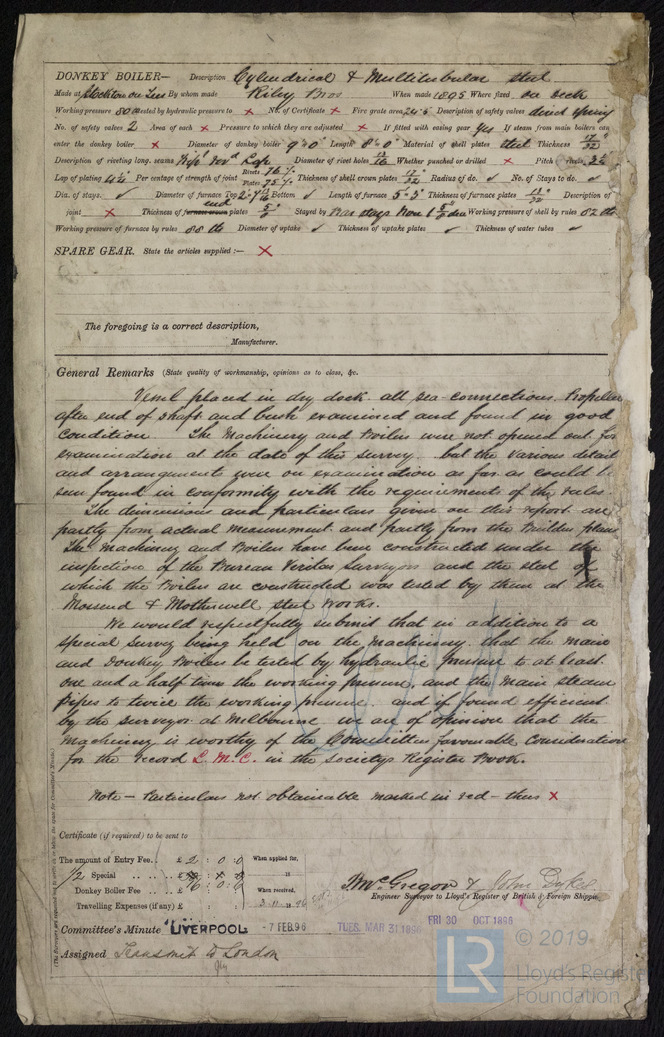 DONKEY BOILER— Description Cylindrical & Multitubular steel
Made at Stockton on Tees By whom made Riley Bros When made 1895 Where fixed on deck
Working pressure 80 tested by hydraulic pressure to × No. of Certificate × Fire grate area 24.5 Description of safety valves direct spring
No. of safety valves 2 Area of each × Pressure to which they are adjusted × If fitted with easing gear yes If steam from main boilers can
enter the donkey boiler × Diameter of donkey boiler 9'0" Length 8'0" Material of shell plates steel Thickness 17/32
Description of riveting long. seams Lap Diameter of rivet holes 13/16 Whether punched or drilled × Pitch of rivets
Lap of plating 4¼ Per centage of strength of joint Rivets 76% Plates 75% Thickness of shell crown plates 17/32 Radius of do. ✓ No. of Stays to do. ✓
Dia. of stays. ✓ Diameter of furnace Top Bottom ✓ Length of furnace 5'3" Thickness of furnace plates 13/32 Description of
joint × Thickness of end plates 5/8 Stayed by Bar stays Working pressure of shell by rules 82 lb
Working pressure of furnace by rules 88 lb Diameter of uptake ✓ Thickness of uptake plates ✓ Thickness of water tubes ✓
SPARE GEAR. State the articles supplied :— ×
The foregoing is a correct description,
Manufacturer.
General Remarks (State quality of workmanship, opinions as to class, &c.
Vessel placed in dry dock. all sea-connections. Propeller
after end of shaft and bush examined and found in good
condition. The Machinery and Boilers were not opened out for
examination at the date of this survey. but the various detail
and arrangements were on examination as far as could be
seen found in conformity with the requirements of the rules.
The dimensions and particulars given on this report are
partly from actual measurement and partly from the Builders plans
The Machinery and Boilers have been constructed under the
inspection of the Bureau Veritas Surveyors and the steel of
which the Boilers are constructed was tested by them at the
Mossend & Motherwell steel works.
We would respectfully submit that in addition to a
special survey being held on the machinery. that the main
and Donkey Boilers be tested by hydraulic pressure to at least
one and a half times the working pressure, and the main steam
pipes to twice the working pressure. and if found efficient
by the surveyor at Melbourne. we are of opinion that the
machinery is worthy of the Committees favourable consideration
for the record L.M.C. in the Society's Register Book.
Note — Particulars not obtainable marked in red — thus ×
Certificate (if required) to be sent to
The amount of Entry Fee . . £ 2 : 0 : 0 When applied for,
1/2 Special . . . . £
Donkey Boiler Fee . . . . £ When received,
Travelling Expenses (if any) £ : : 3-11-1896
J. McGregor & John Dykes
Engineer Surveyor to Lloyd's Register of British & Foreign Shipping
Committee's Minute LIVERPOOL - 7 FEB 96 TUES. MAR 31 1896 FRI 30 OCT 1896
Assigned Transmit to London
(The Surveyors are requested not to write on or below the space for Committee's Minute.)
LR © 2019
Lloyd's Register
Foundation